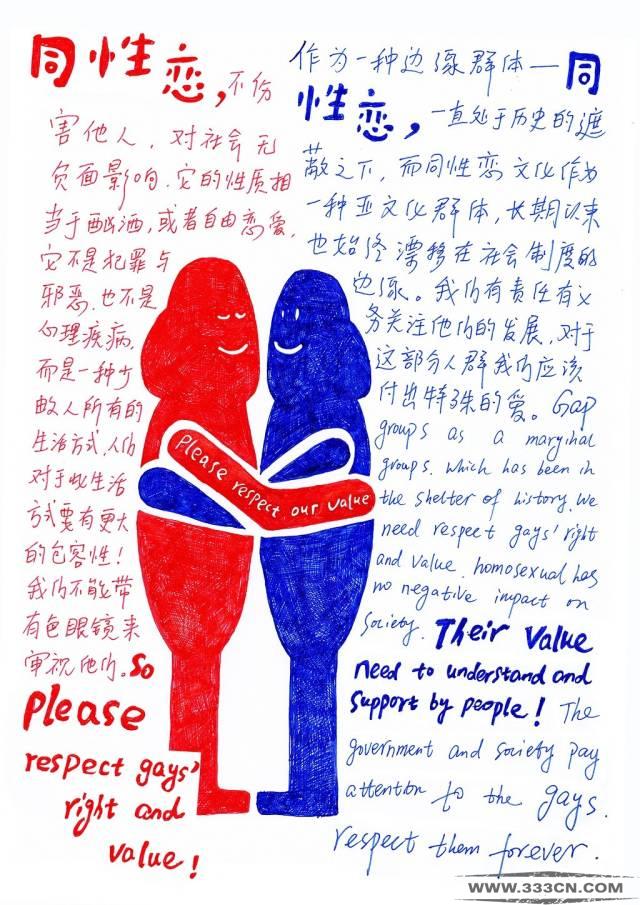 同性恋,不伤
害他人,对社会无
负面影响.它的性质相
当于酗酒,或者自由恋爱,
它不是犯罪与
邪恶.也不是
心理疾病,
而是一种少
数人所有的
生活方式,人们
对于此生活
方式要有更大
的包容性!
我们不能带
有色眼镜来
审视他们。So
please
respect gays'
right and
value!
作为一种边缘群体—同
性恋,一直处于历史的遮
蔽之下,而同性恋文化作为
一种亚文化群体,长期以来
也始终漂移在社会制度的
边缘。我们有责任有义
务关注他们的发展,对于
这部分人群我们应该
付出特殊的爱。Gap
groups as a marginal
groups. which has been in
the shelter of history. We
need respect gays' right
and value. homosexual has
no negative impact on
society. Their Value
need to understand and
support by people! The
government and society pay
attention to the gays.
respect them forever.
please respect our value
WWW.333CN.COM